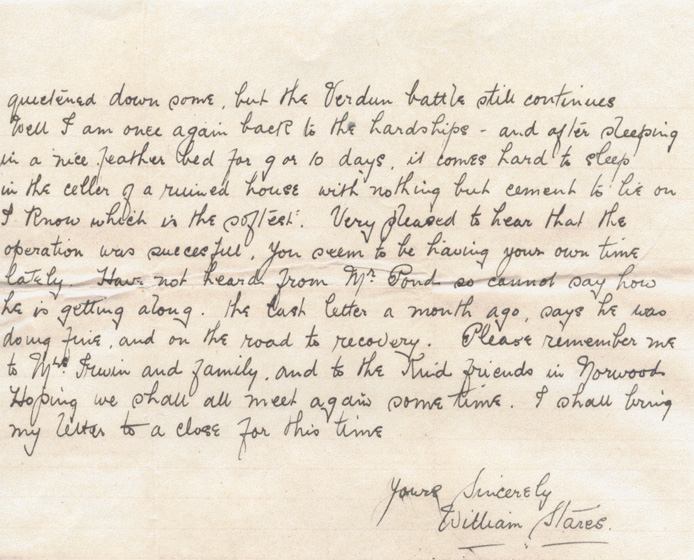 quietened down some, but the Verdun battle still continues
Well I am once again back to the hardships - and after sleeping
in a nice feather bed for 9 or 10 days, it comes hard to sleep
in the celler of a ruined house with nothing but cement to lie on
I know which is the softest. Very pleased to hear that the
operation was succesful, you seem to be having your own time
lately. Have not heard from Mr Pond so cannot say how
he is getting along. the last letter a month ago, says he was
doing fine, and on the road to recovery. Please remember me
to Mrs Irwin and family, and to the Kind friends in Norwood
Hoping we shall all meet again some time. I shall bring
my letter to a close for this time
Yours Sincerely
William Stares.